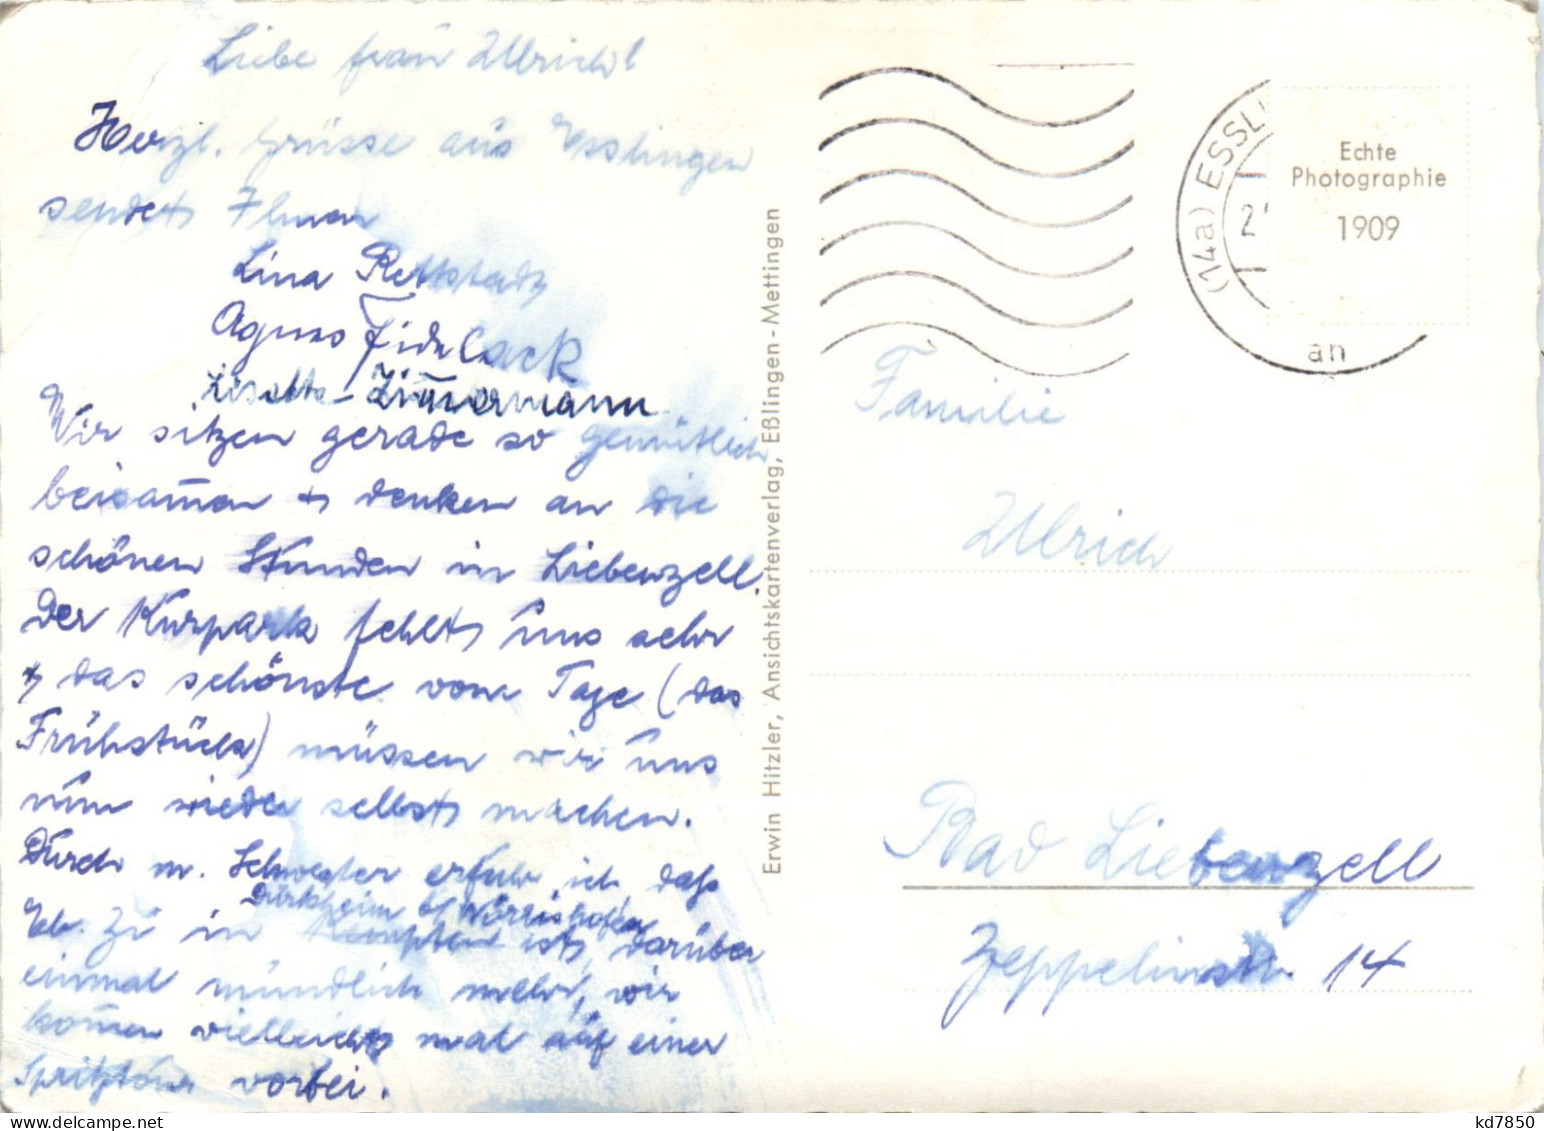 Liebe Frau Ullrich!
Herzl. Grüsse aus Esslingen
sendet Ihnen
Lina
Agnes
Zimmermann
Wir sitzen gerade so gemütlich
beisam̅en & denken an die
schönen Stunden in Liebenzell.
Der Kurpark fehlt uns sehr
& das schönste vom Tage (das
Frühstück) müssen wir uns
nun wieder selbst machen.
Durch m. Schwester erfuhr ich, daß
Dürkheim b/ Wörrishofen
in Kempten ist, darüber
einmal mündlich mehr, wir
kom̅en vielleicht mal auf einer
Spritztour vorbei.
Erwin Hitzler, Ansichtskartenverlag, Eßlingen-Mettingen
(14a) ESSLI
2
an
Echte
Photographie
1909
Familie
Ullrich
Bad Liebenzell
Zeppelinstr. 14
kd7850